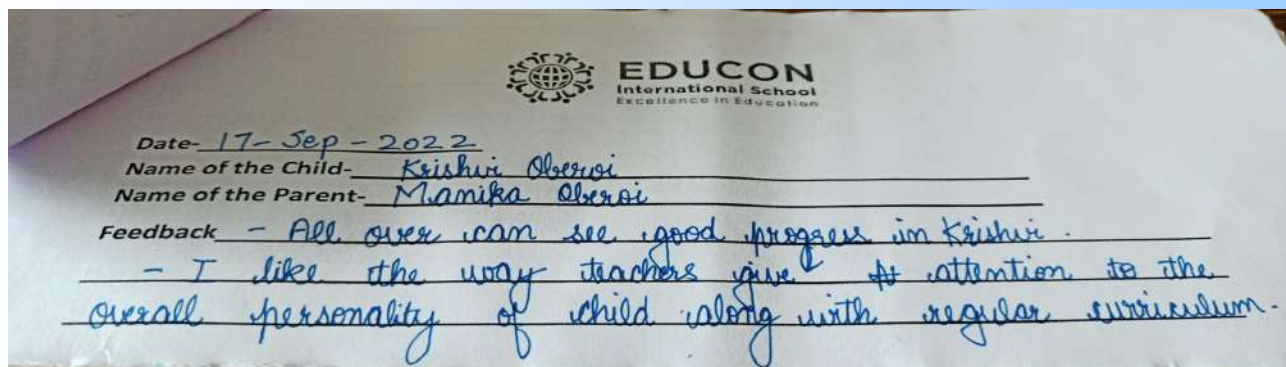 EDUCON
International School
Excellence in Education
Date- 17-Sep-2022
Name of the Child- Krishvi Oberoi
Name of the Parent- Manika Oberoi
Feedback - All over can see good progress in Krishvi.
- I like the way teachers give attention to the
overall personality of child along with regular curriculum.